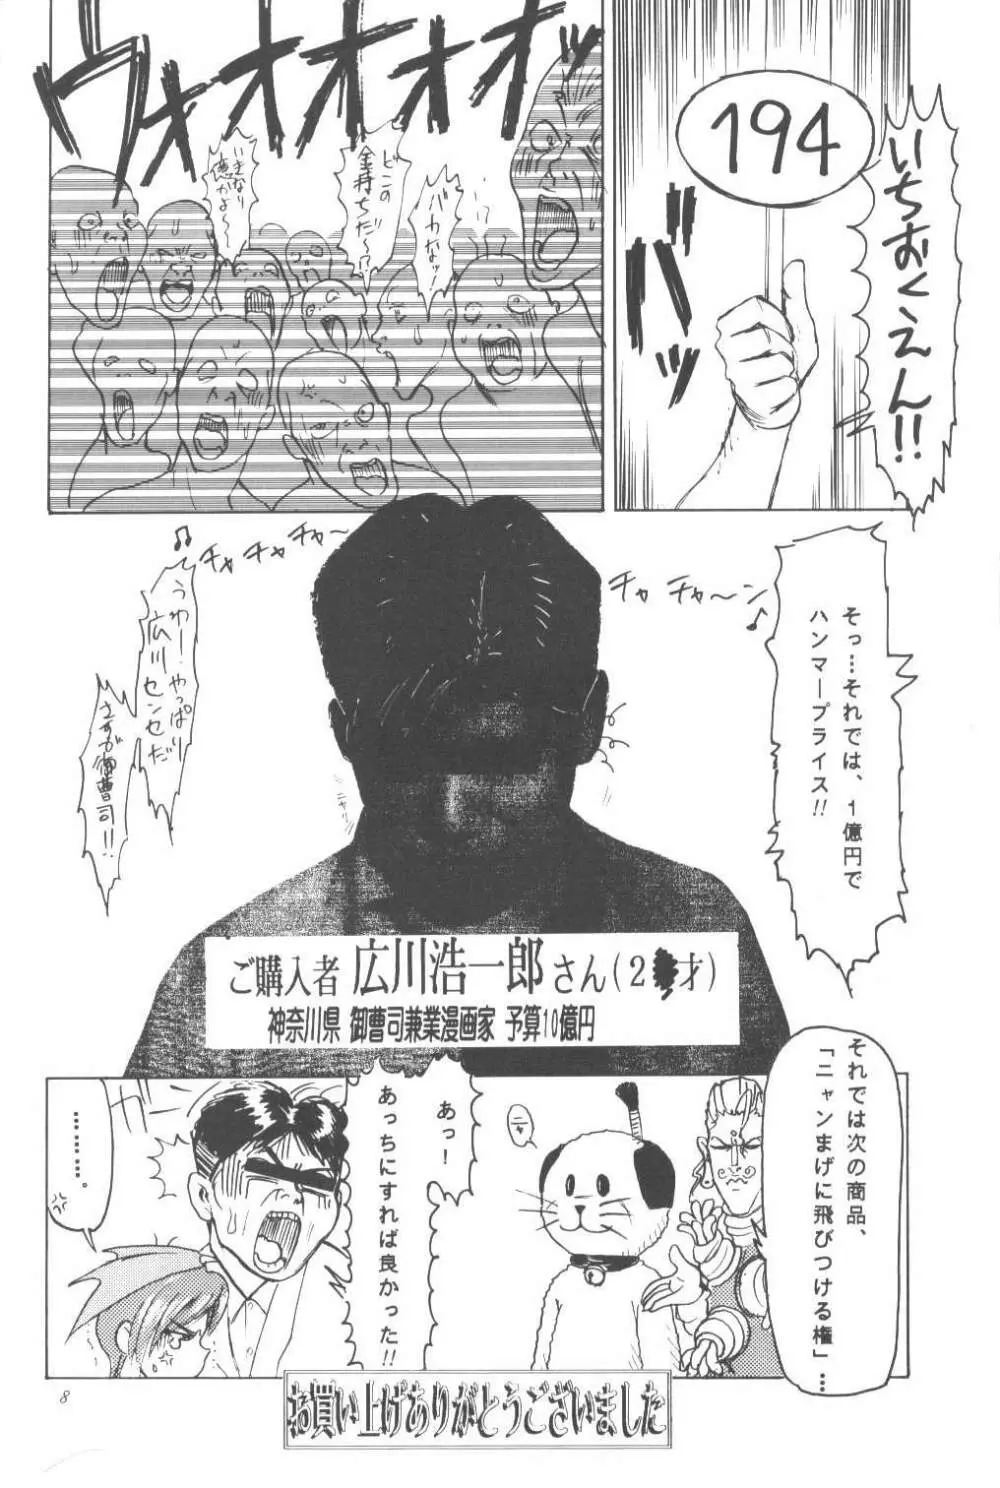 194
いちおくえん!!
バッ
ウォオオオオッ
バカなッ!
どこの
金持ちだ〜!?
いきなり
億かよ〜
そっ…それでは、1億円で
ハンマープライス!!
チャ チャ〜ン♪
♪チャ チャ チャ〜
うわー!やっぱり
広川センセだ
さすが御曹司!!
ニヤ
ご購入者 広川浩一郎さん(2 才)
神奈川県 御曹司兼業漫画家 予算10億円
それでは次の商品、
「ニャンまげに飛びつける権」…
あっ!
あっちにすれば良かった!!
………。
お買い上げありがとうございました
8